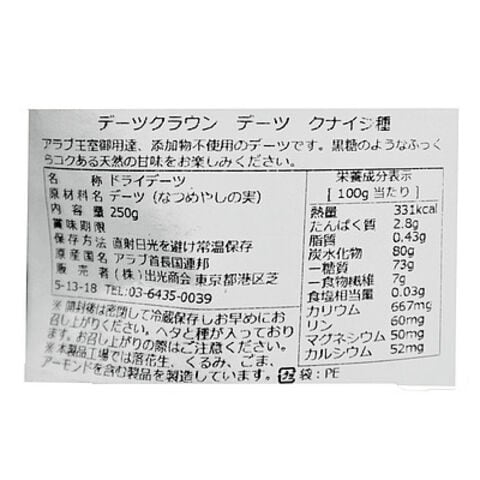 デーツクラウン デーツ クナイジ種
アラブ王室御用達、添加物不使用のデーツです。黒糖のようなふっく
らコクある天然の甘味をお楽しみください。
名 称 ドライデーツ
原材料名 デーツ（なつめやしの実）
内 容 量 250g
賞味期限
保存方法 直射日光を避け常温保存
原産国名 アラブ首長国連邦
販 売 者 （株）出光商会 東京都港区芝
5-13-18 TEL:03-6435-0039
※ 開封後は密閉して冷蔵保存しお早めにお
召し上がりください。ヘタと種が入っており
ます。お召し上がりの際はご注意ください。
※本製品工場では落花生、くるみ、ごま、
アーモンドを含む製品を製造しています。
栄養成分表示
[ 100g当たり ]
熱量 331kcal
たんぱく質 2.8g
脂質 0.43g
炭水化物 80g
ー糖質 73g
ー食物繊維 7g
食塩相当量 0.03g
カリウム 667mg
リン 60mg
マグネシウム 50mg
カルシウム 52mg
プラ 袋：PE